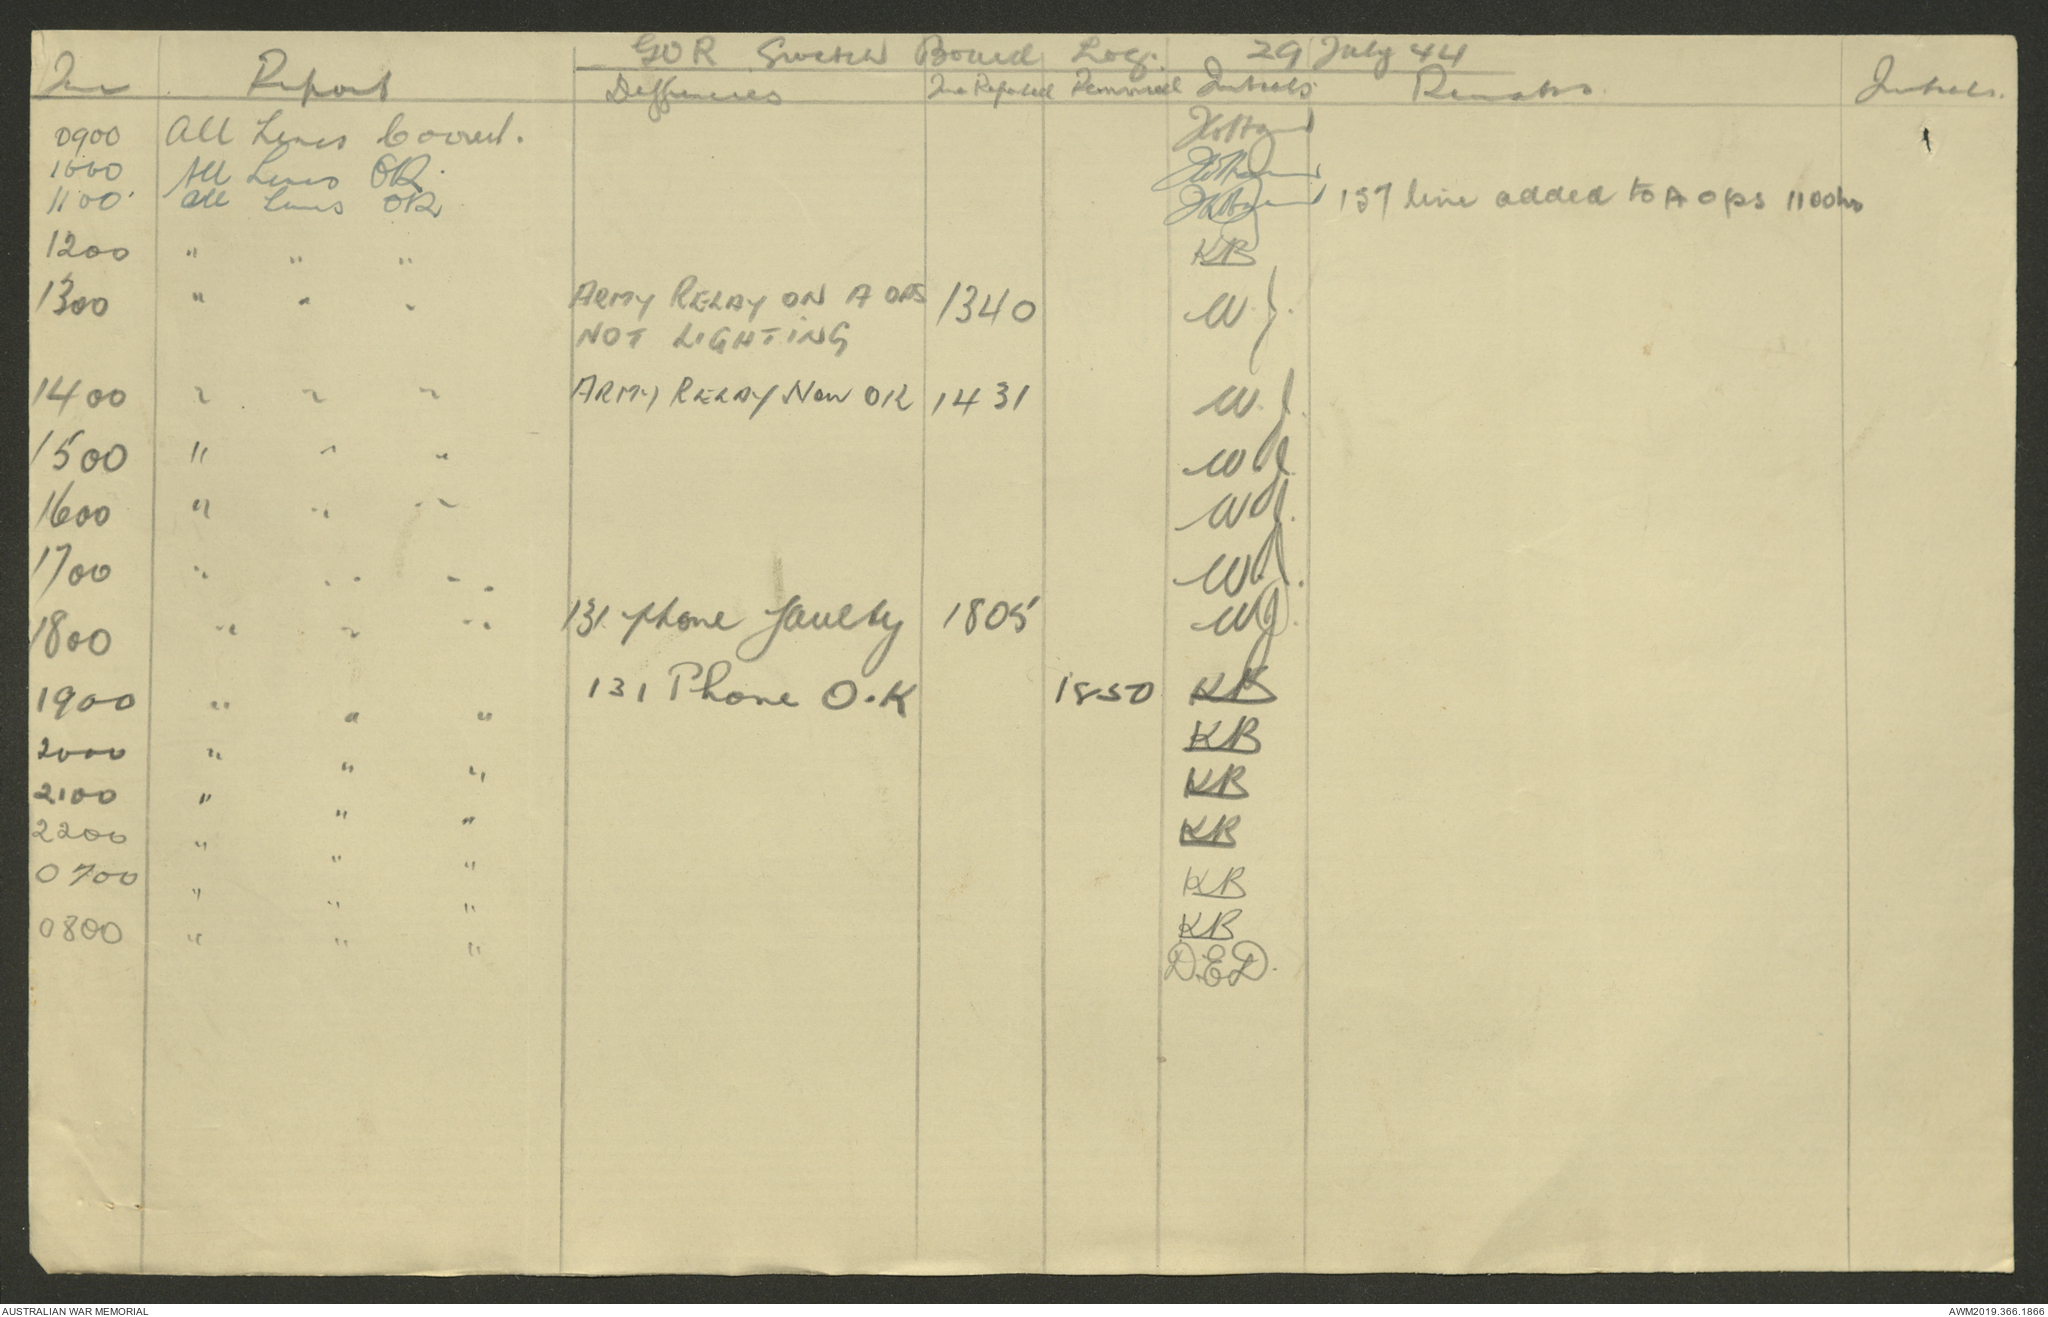 GOR Switch Board Log. 29 July 44
Time Report Time Reported Removed Initials Remarks Initials.
0900 All Lines Correct.
1000 All Lines OK.
1100 All Lines OK 157 line added to A ops 1100hrs
1200 " " " KB
1300 " " " ARMY RELAY ON A OPS 1340 W.J.
NOT LIGHTING
1400 " " " ARMY RELAY Now OK 1431 W.J.
1500 " " " WJ.
1600 " " " WJ.
1700 " " " WJ.
1800 " " " 131 phone faulty 1805 WJ.
1900 " " " 131 Phone O.K 1850 KB
2000 " " " KB
2100 " " " KB
2200 " " " KB
0700 " " " KB
0800 " " " KB
D.E.D.
AUSTRALIAN WAR MEMORIAL AWM2019.366.1866